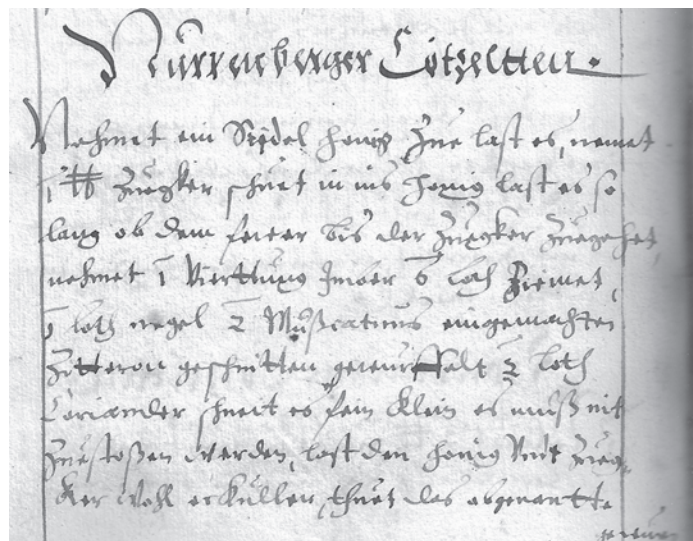 Nürrenberger Lotzeltten.
Nehmet ein Seydel honig Zue last es, nemet
1 ℔ Zuegker schuet in ins honig last es so
lang ob dem feuer bis der Zuegker Zuegehet,
nehmet 1 Vierttung Imber 6 loth Ziemet,
1 loth negel 2 Mußcatnus eingemachten
Zitteron geschnitten gewürffalt 2 loth
Coriander schneit es fein Klein es muß nit
Zuestoßen werden, last den honig Vnd Zueg-
Ker wohl erkullen, thuet das obgenantte
gewürz